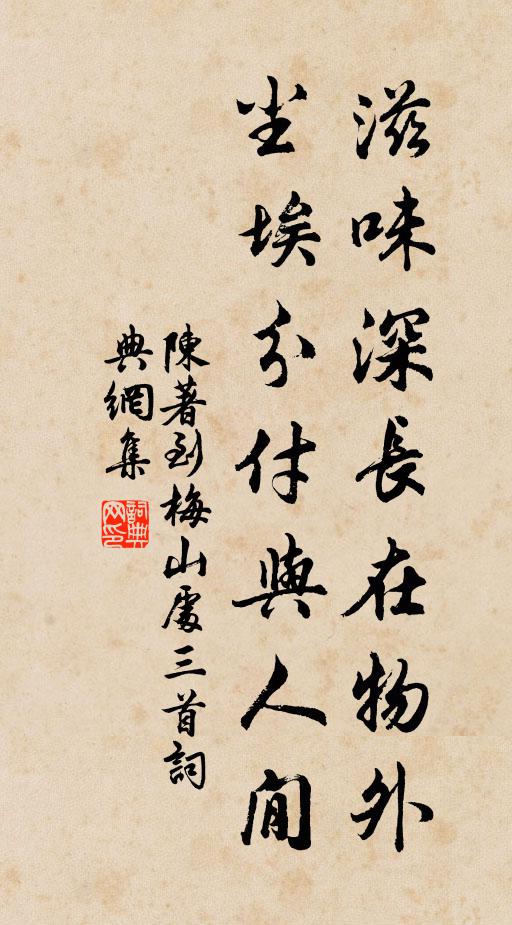 滋味深長在物外
坐埃分付與人間
陳著到梅山處三首詞
典網集
詞典網印